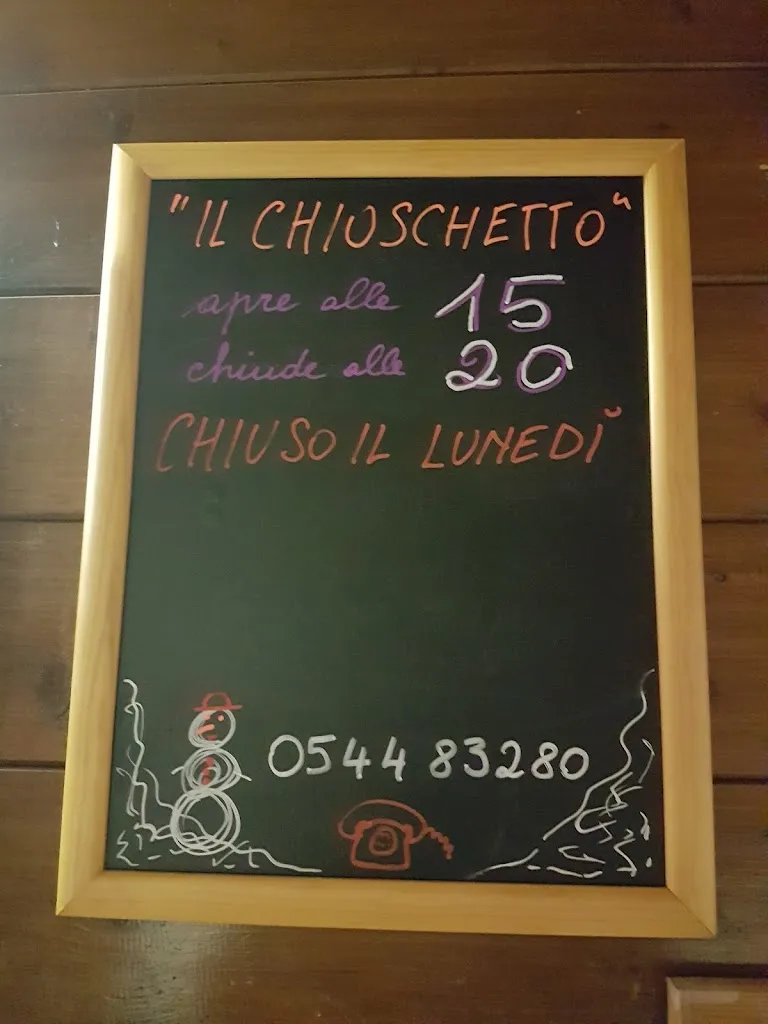 "IL CHIOSCHETTO"
apre alle 15
chiude alle 20
CHIUSO IL LUNEDÌ
0544 83280